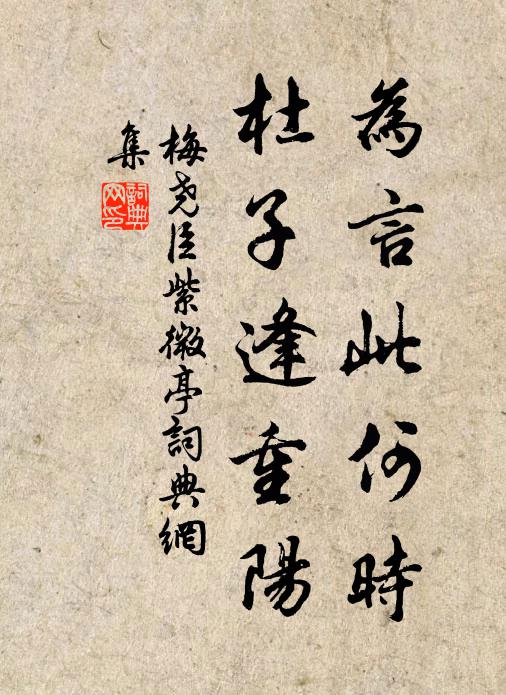 為言此何時
杜子逢重陽
梅堯臣紫微亭詞典網
集
詞典網印